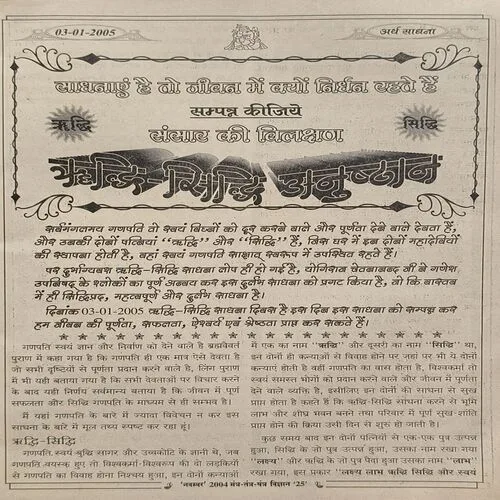 03-01-2005
अर्थ साधना
साधनाएं है तो जीवन में क्यों निर्धन रहते हैं
सम्पन्न कीजिये
ऋद्धि
सिद्धि
संसार की विलक्षण
ऋद्धि सिद्धि अनुष्ठान
सर्वमंगलमय गणपति तो स्वयं विघ्नों को दूर करने वाले और पूर्णता देने वाले देवता हैं,
और उनकी दोनों पत्नियां "ऋद्धि" और "सिद्धि" हैं, जिस घर में इन दोनों महादेवियों
की स्थापना होती है, वहां स्वयं गणपति साक्षात् स्वरूप में उपस्थित रहते हैं।
पर दुर्भाग्यवश ऋद्धि-सिद्धि साधना लोप ही हो गई है, योगिराज चेतनानन्द जी ने गणेश
उपनिषद के श्लोकों का पूर्ण अन्वय कर इस दुर्लभ साधना को प्रगट किया है, जो कि वास्तव
में ही सिद्धिप्रद, महत्वपूर्ण और दुर्लभ साधना है।
दिनांक 03-01-2005 ऋद्धि-सिद्धि साधना दिवस है इस दिन इस साधना को सम्पन्न कर
हम जीवन की पूर्णता, सफलता, ऐश्वर्य एवं श्रेष्ठता प्राप्त कर सकते हैं।
गणपति स्वयं ज्ञान और निर्वाण को देने वाले है ब्रह्मवैवर्त
पुराण में कहा गया है कि गणपति ही एक मात्र ऐसे देवता है
जो सभी दृष्टियों से पूर्णता प्रदान करने वाले है, लिंग पुराण
में भी यही बताया गया है कि सभी देवताओं पर विचार करने
के बाद यही निर्णय सर्वमान्य बताया है कि जीवन में पूर्ण
सफलता और सिद्धि गणपति के माध्यम से ही सम्भव है।
मैं यहां गणपति के बारे में ज्यादा विवेचन न कर इस
साधना के बारे में मूल तथ्य स्पष्ट कर रहा हूं।
ऋद्धि-सिद्धि
गणपति स्वयं बुद्धि सागर और उच्चकोटि के ज्ञानी थे, जब
गणपति वयस्क हुए तो विश्वकर्मा विश्वरूप की दो लड़कियों
से गणपति का विवाह हुआ, इन दोनों
में एक का नाम "ऋद्धि" और दूसरी का नाम "सिद्धि" था,
इन दोनों ही कन्याओं से विवाह होने पर जहां पर भी ये दोनों
कन्याएं होती है वहीं गणपति का वास होता है, विश्वकर्मा तो
स्वयं समस्त भोगों को प्रदान करने वाले और जीवन में पूर्णता
देने वाले व्यक्ति है, इसीलिए इन दोनों की साधना से सुख
प्राप्त होता है कहते हैं कि ऋद्धि-सिद्धि साधना करने से भूमि
लाभ और शीघ्र भवन बनने तथा परिवार में पूर्ण सुख-शांति
प्राप्त होने की क्रिया उसी दिन से शुरु हो जाती है।
कुछ समय बाद इन दोनों पत्नियों से एक-एक पुत्र उत्पन्न
हुआ, सिद्धि के जो पुत्र उत्पन्न हुआ, उसका नाम रखा गया
"लक्ष्य" और ऋद्धि के जो पुत्र पैदा हुआ उसका नाम "लाभ"
रखा गया, इस प्रकार "लक्ष्य लाभ ऋद्धि सिद्धि और स्वयं
'नवम्बर' 2004 मंत्र-तंत्र-यंत्र विज्ञान '25'